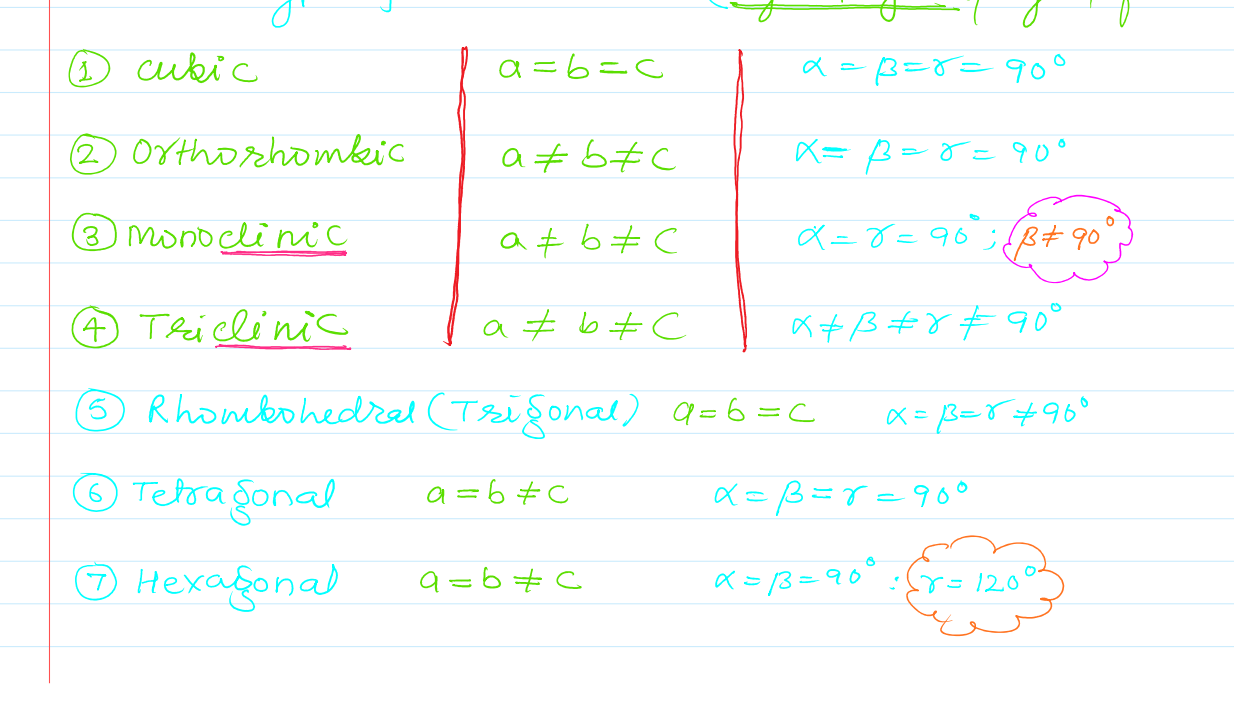 ① Cubic a = b = c α = β = γ = 90°
② Orthorhombic a ≠ b ≠ c α = β = γ = 90°
③ Monoclinic a ≠ b ≠ c α = γ = 90° ; β ≠ 90°
④ Triclinic a ≠ b ≠ c α ≠ β ≠ γ ≠ 90°
⑤ Rhombohedral (Trigonal) a = b = c α = β = γ ≠ 90°
⑥ Tetragonal a = b ≠ c α = β = γ = 90°
⑦ Hexagonal a = b ≠ c α = β = 90° : γ = 120°